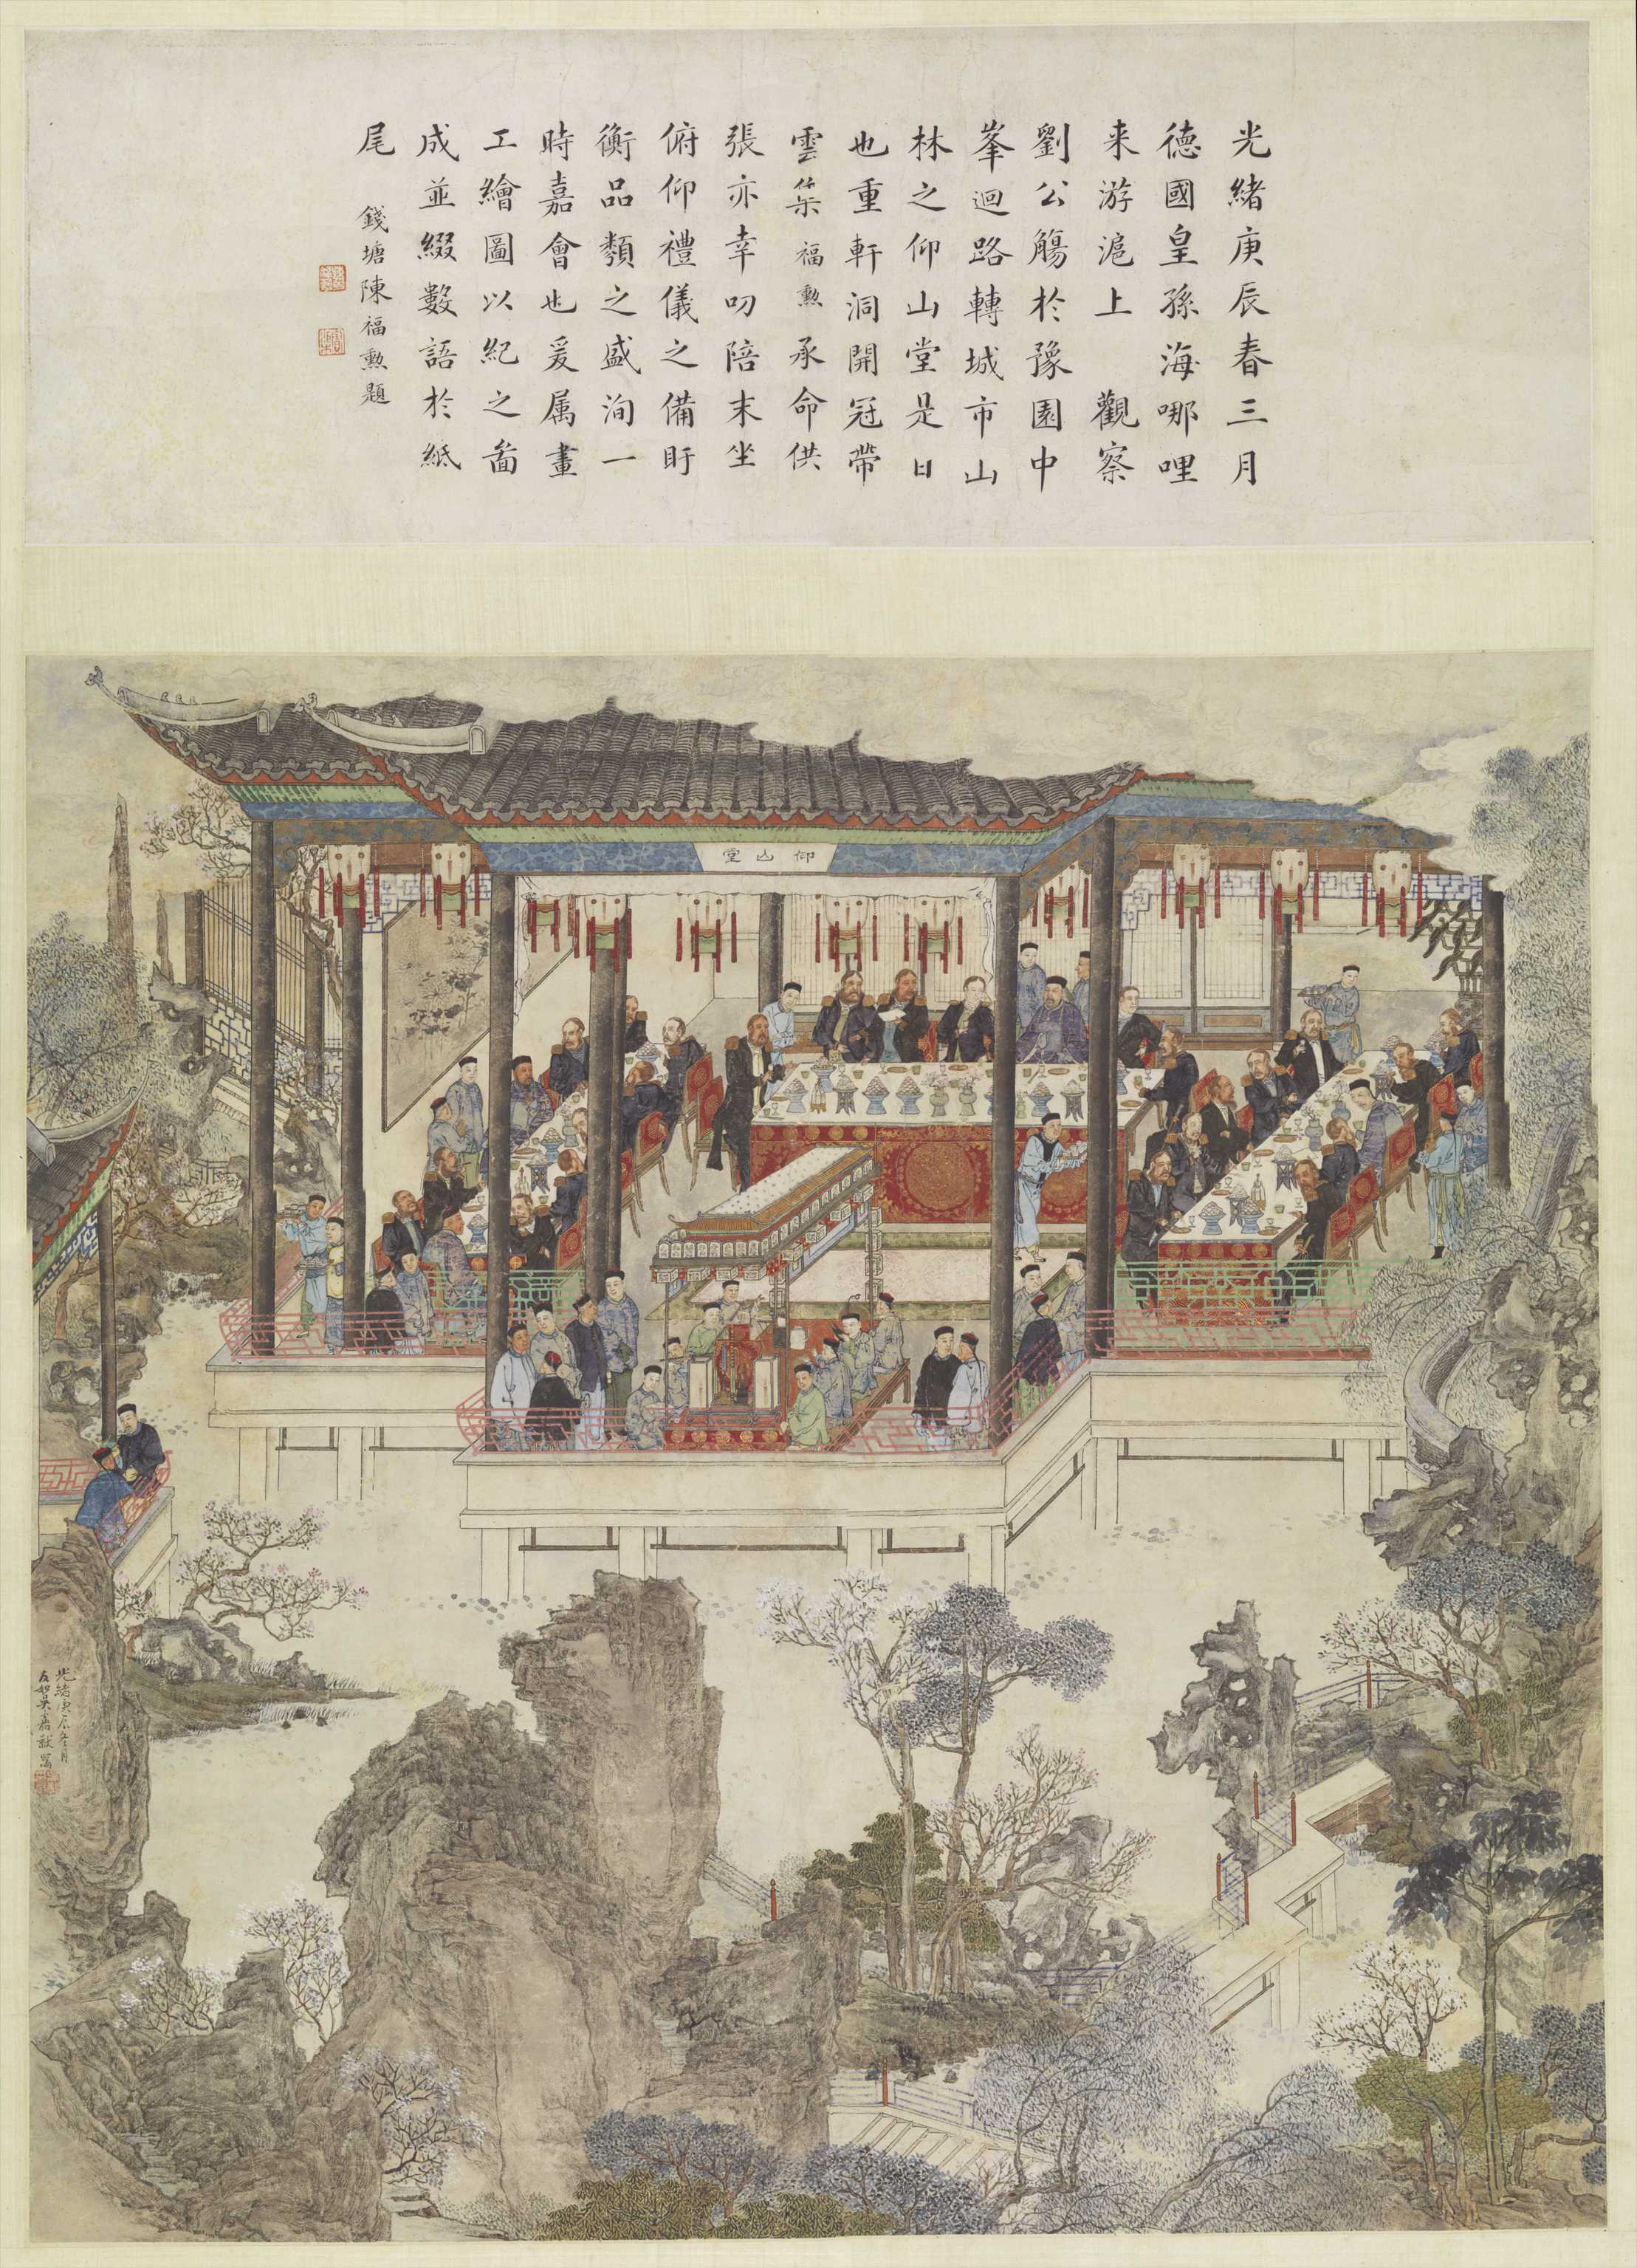 光緒庚辰春三月
德國皇孫海哪哩
来游滬上 觀察
劉公觴於豫園中
峯迴路轉城市山
林之仰山堂是日
也重軒洞開冠帶
雲集福勲承命供
張亦幸叨陪末坐
俯仰禮儀之備盱
衡品類之盛洵一
時嘉會也爰属畫
工繪圖以紀之啚
成並綴數語於紙
尾
錢塘陳福勲題
仰山堂
光緒庚辰冬月
友如吳嘉猷寫